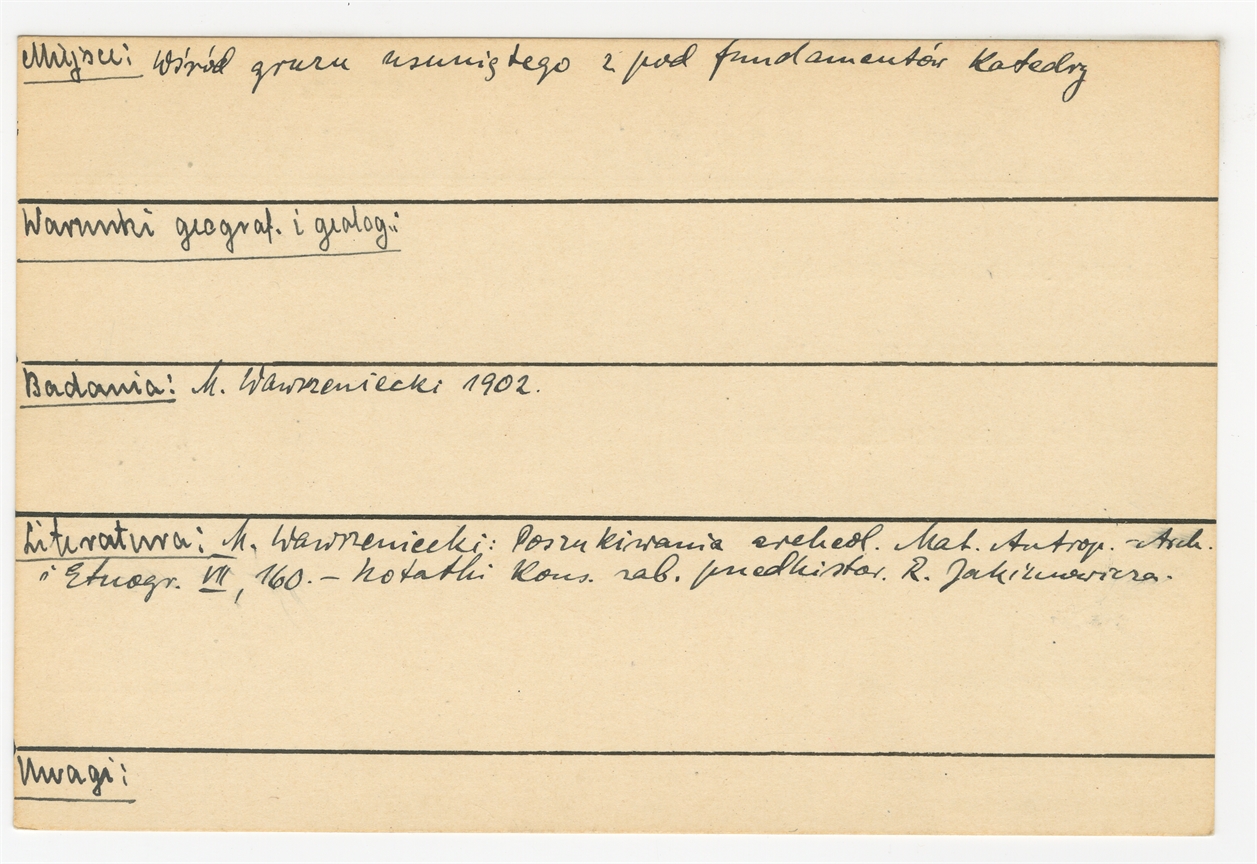 Miejsce: Wśród gruzu usuniętego z pod fundamentów Katedry
Warunki geograf. i geolog.:
Badania: M. Wawrzeniecki 1902.
Literatura: M. Wawrzeniecki: Poszukiwania archeol. Mat. Antrop. - Arch.
i Etnogr. VII, 160. – Notatki Kons. zab. przedhistor. R. Jakimowicza.
Uwagi: